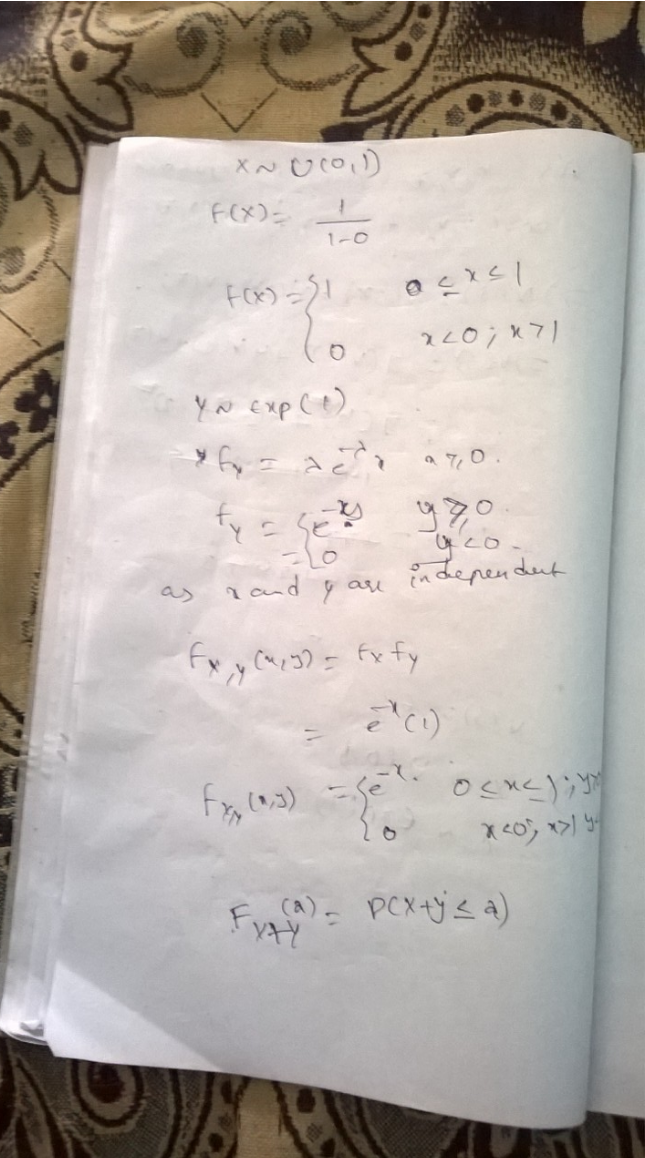 x ~ U(0,1)
f(x) = 1/(1-0)
f(x) = { 1 0 ≤ x ≤ 1
0 x<0; x>1
Y ~ exp(1)
fx = λe^-λx x ≥ 0.
fy = { e^-y y ≥ 0.
= 0 y<0.
as x and y are independent
fx,y (x,y) = fx fy
= e^-x (1)
fx,y (x,y) = { e^-x. 0 ≤ x ≤ 1; y>
0 x<0; x>1 y
F x+y (a) = P(x+y ≤ a)